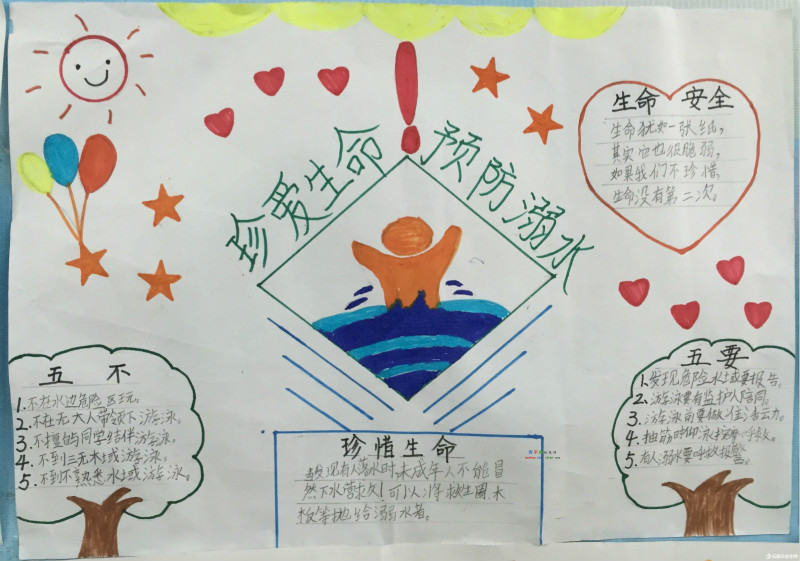 珍爱生命
预防溺水
生命 安全
生命犹如一张纸，
其实它也很脆弱，
如果我们不珍惜
生命没有第二次。
五 不
1.不在水边危险区玩。
2.不在无大人带领下游泳。
3.不擅自与同学结伴游泳。
4.不到三无水域游泳。
5.不到不熟悉水域游泳。
五 要
1.发现危险水域要报告。
2.游泳要有监护人陪同。
3.游泳前要做准备活动。
4.抽筋时仰泳
5.有人溺水要呼救报警。
珍惜生命
发现有人溺水时未成年人不能冒
然下水营救 可以将救生圈木
板等抛给溺水者。